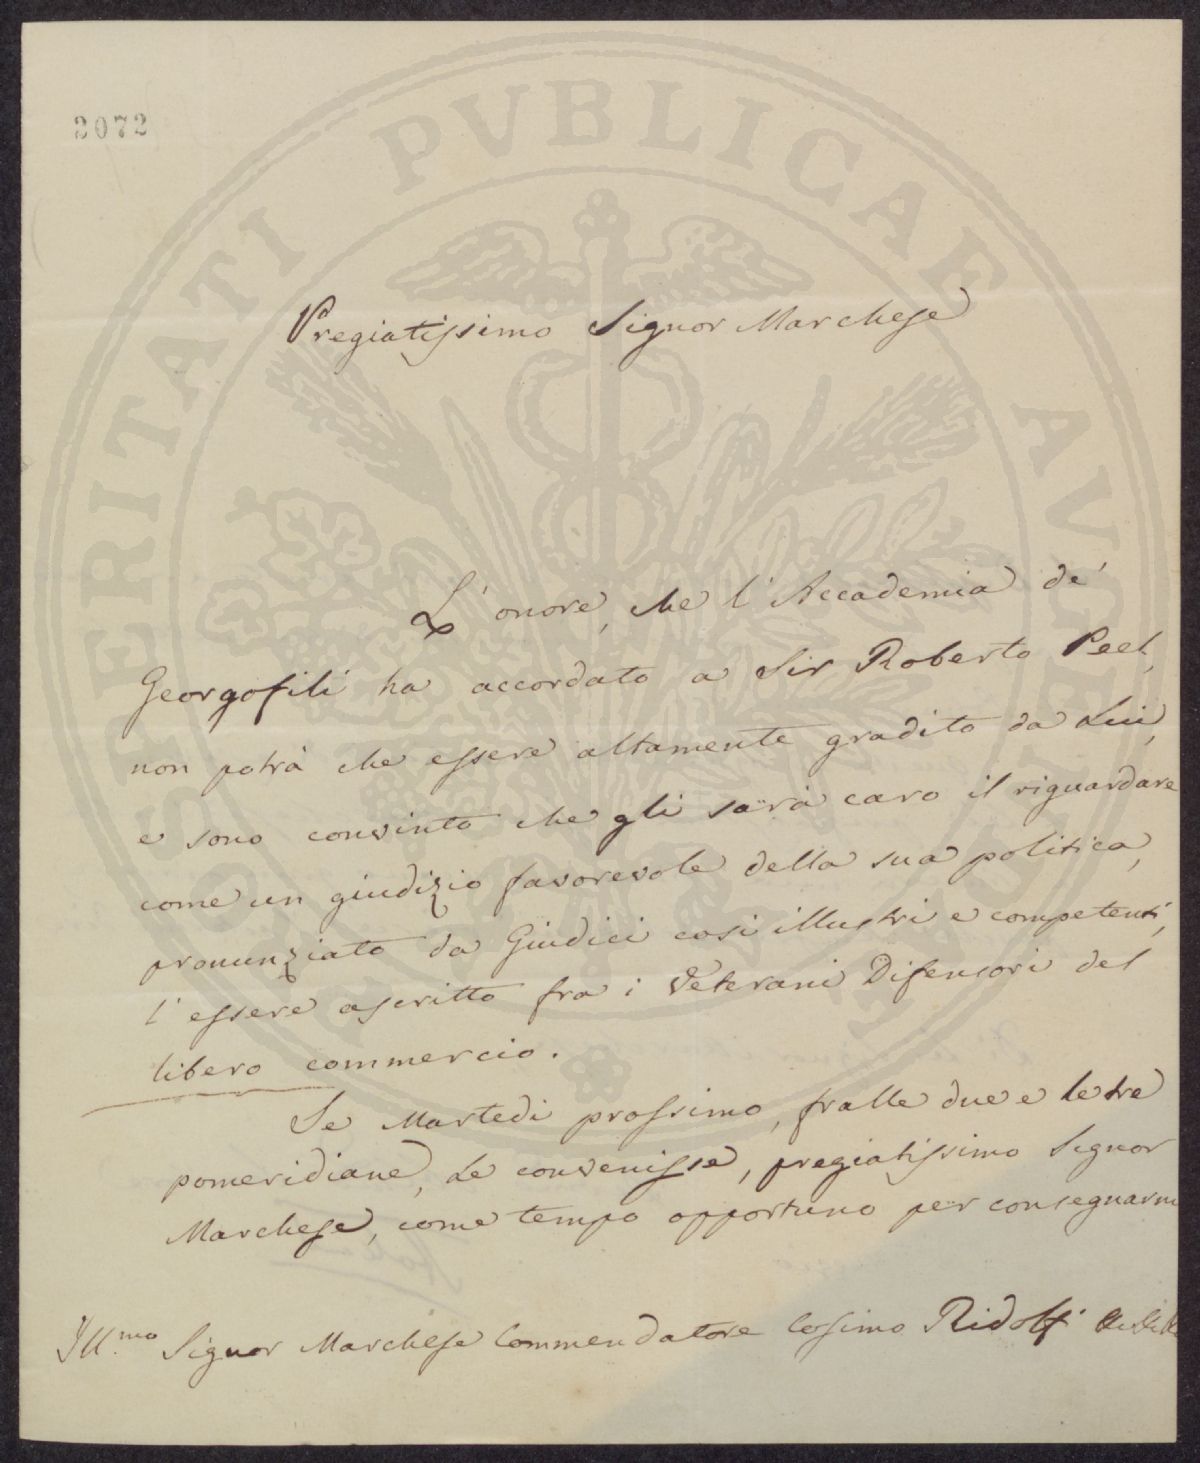 2072
PROSPERITATI PVBLICAE AVGENDAE
Pregiatissimo Signor Marchese
L'onore, che l'Accademia de'
Georgofili ha accordato a Sir Roberto Peel,
non potrà che essere altamente gradito da Lui,
e sono convinto che gli sarà caro il riguardare
come un giudizio favorevole della sua politica,
pronunziato da Giudici così illustri e competenti,
l'essere ascritto fra i Veterani Difensori del
libero commercio.
Se Martedì prossimo, fralle due e le tre
pomeridiane, Le convenisse, pregiatissimo Signor
Marchese, come tempo opportuno per consegnarmi
Ill.mo Signor Marchese Commendatore Cosimo Ridolfi